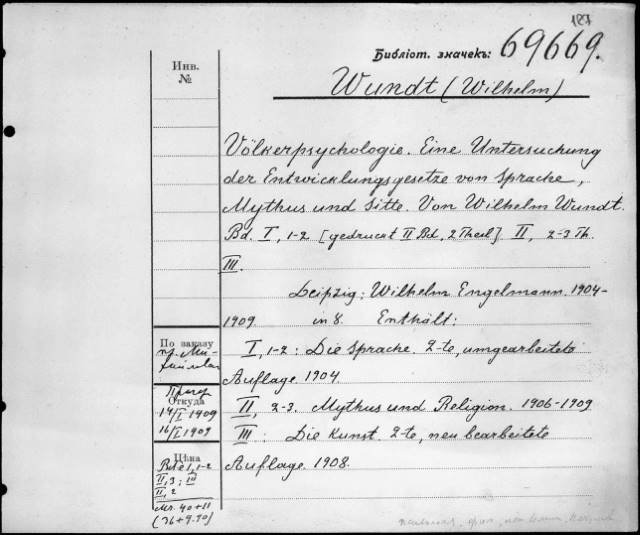 187
Библіот. значекъ: 69669.
Wundt (Wilhelm)
Инв.
№
Völkerpsychologie. Eine Untersuchung
der Entwicklungsgesetze von Sprache,
Mythus und Sitte. Von Wilhelm Wundt.
Bd. I, 1-2 [gedruckt II Bd, 2 Theil] II, 2-3 Th.
III.
Leipzig: Wilhelm Engelmann. 1904-
1909. in 8. Enthält:
I, 1-2: Die Sprache. 2-te, umgearbeitete
Auflage. 1904.
II, 2-3. Mythus und Religion. 1906-1909
III: Die Kunst. 2-te, neu bearbeitete
Auflage. 1908.
По заказу
пр. Ми-
Откуда
14/I 1909
16/I 1909
Цѣна
Bde 1, 1-2
II, 3; III
II, 2
Mr. 40+11
(36+9.90)